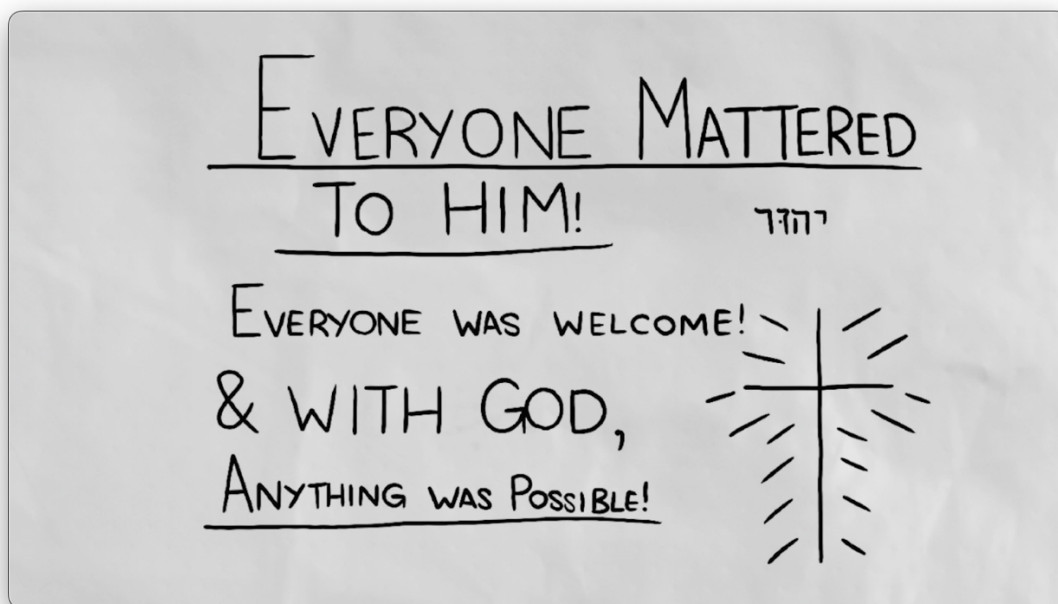 EVERYONE MATTERED
TO HIM!
יהדר
EVERYONE WAS WELCOME!
& WITH GOD,
ANYTHING WAS POSSIBLE!